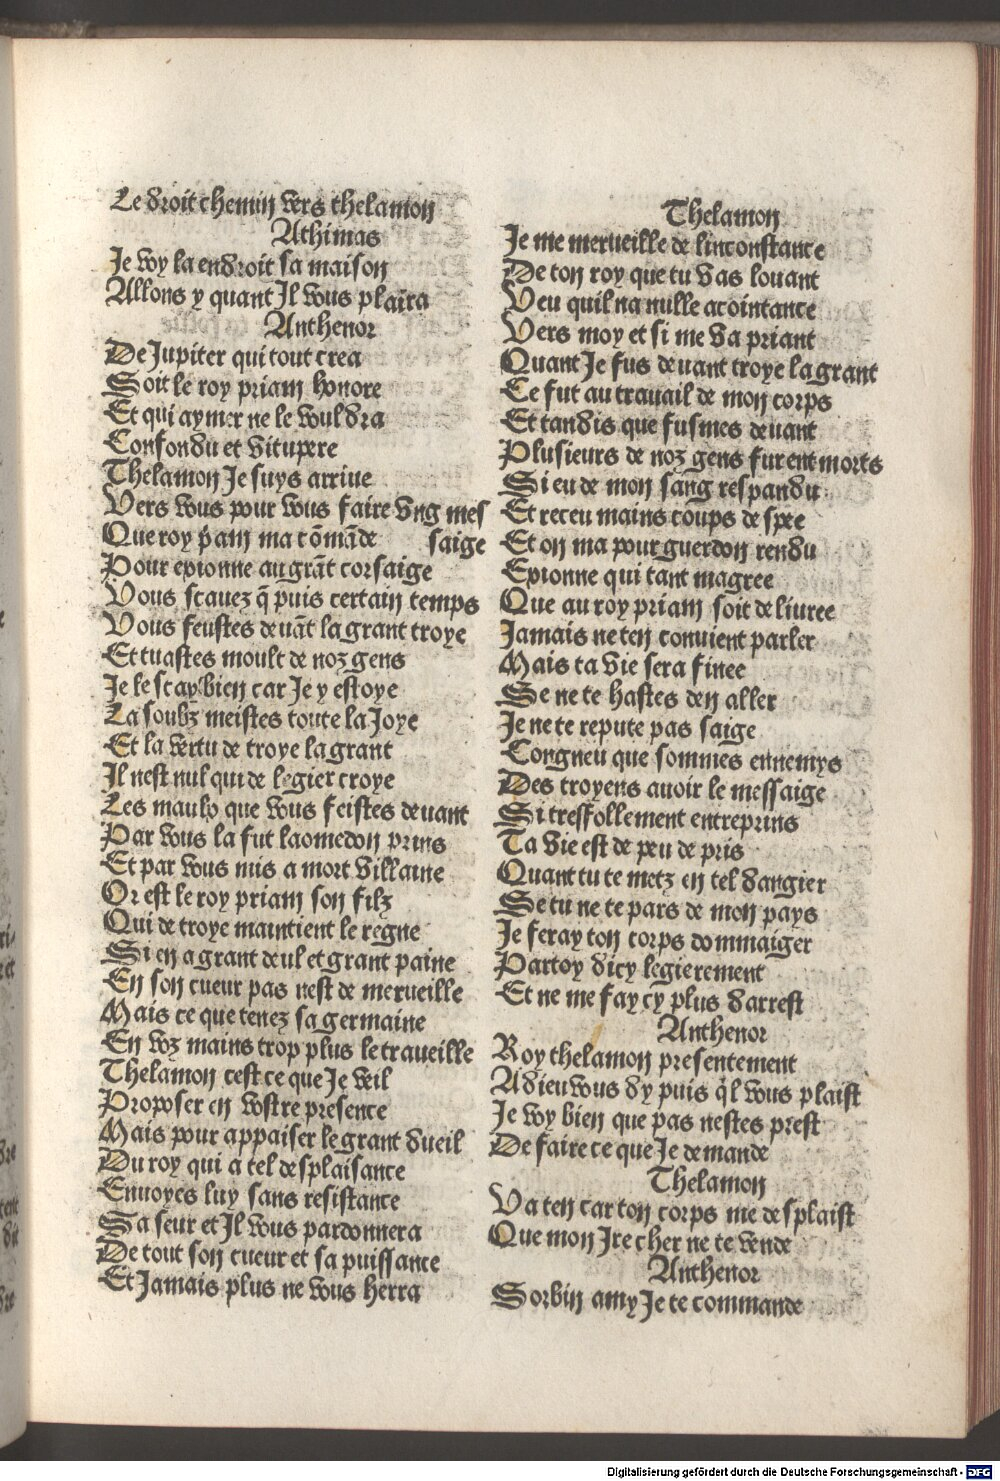 Le droit chemin vers thelamon
Athimas
Je voy la endroit sa maison
Allons y quant Il vous plaira
Anthenor
De Jupiter qui tout crea
Soit le roy priam honore
Et qui aymer ne le vouldra
Confondu et vitupere
Thelamon Je suys arriue
Vers vous pour vous faire vng mes
Que roy p̃am ma cõmãde saige
Pour epionne au grãt corsaige
Vous scauez q̃ puis certain temps
Vous feustes deuãt la grant troye
Et tuastes moult de noz gens
Je le scay bien car Je y estoye
La soubz meistes toute la Joye
Et la vertu de troye la grant
Il nest nul qui de legier croye
Les maulx que vous feistes deuant
Par vous la fut laomedon prins
Et par vous mis a mort villaine
Or est le roy priam son filz
Qui de troye maintient le regne
Si en a grant deul et grant paine
En son cueur pas nest de merueille
Mais ce que tenez sa germaine
En voz mains trop plus le traueille
Thelamon cest ce que Je veil
Proposer en vostre presence
Mais pour appaiser le grant dueil
Du roy qui a tel desplaisance
Enuoyes luy sans resistance
Sa seur et Il vous pardonnera
De tout son cueur et sa puissance
Et Jamais plus ne vous herra
Thelamon
Je me merueille de linconstance
De ton roy que tu vas louant
Veu quil na nulle acointance
Vers moy et si me va priant
Quant Je fus deuant troye la grant
Ce fut au trauail de mon corps
Et tandis que fusmes deuant
Plusieurs de noz gens furent morts
Si eu de mon sang respandu
Et receu mains coups de spee
Et on ma pour guerdon rendu
Epionne qui tant magree
Que au roy priam soit deliuree
Jamais ne ten conuient parler
Mais ta vie sera finee
Se ne te hastes den aller
Je ne te repute pas saige
Congneu que sommes ennemys
Des troyens auoir le messaige
Si tresfollement entreprins
Ta vie est de peu de pris
Quant tu te metz en tel dangier
Se tu ne te pars de mon pays
Je feray ton corps dommaiger
Partoy dicy legierement
Et ne me fay cy plus darrest
Anthenor
Roy thelamon presentement
Adieu vous dy puis q̃l vous plaist
Je voy bien que pas nestes prest
De faire ce que Je demande
Thelamon
Va ten car ton corps me desplaist
Que mon Ire cher ne te vende
Anthenor
Sorbin amy Je te commande
Digitalisierung gefördert durch die Deutsche Forschungsgemeinschaft - DFG